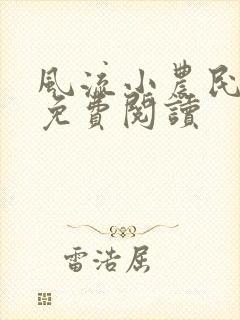 風流小農民
免費閱讀
雷浩屈